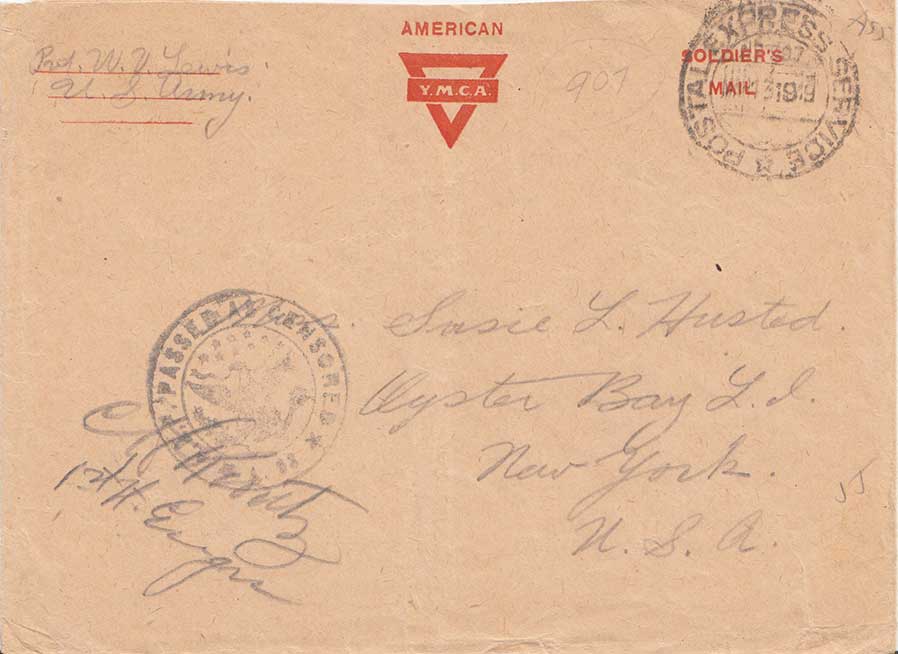 AMERICAN
Y.M.C.A.
SOLDIER'S
MAIL
Pvt. W. Y. Lewis.
U. S. Army.
907
POSTAL EXPRESS SERVICE
1919
A55
PASSED AS CENSORED
Mrs. Susie L. Husted.
Oyster Bay L. I.
New York.
U. S. A.
1st Lt. Engrs
55